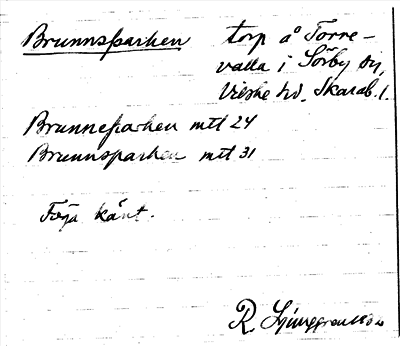 Brunnsparken torp å Torre-
valla i Sörby sn,
Vilske hd, Skarab. l.
Brunneparken mtl 24
Brunnsparken mtl 31
Föga känt.
R. Ljunggren